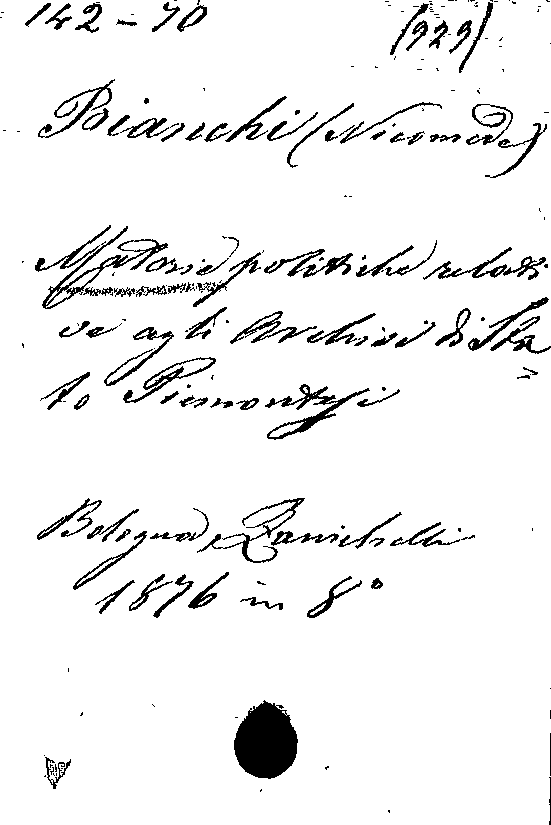 142-70
(929)
Bianchi (Nicomede)
Materie politiche relati
ve agli Archivi di Sta
to Piemontesi
Bologna, Zanichelli
1876 in 8°